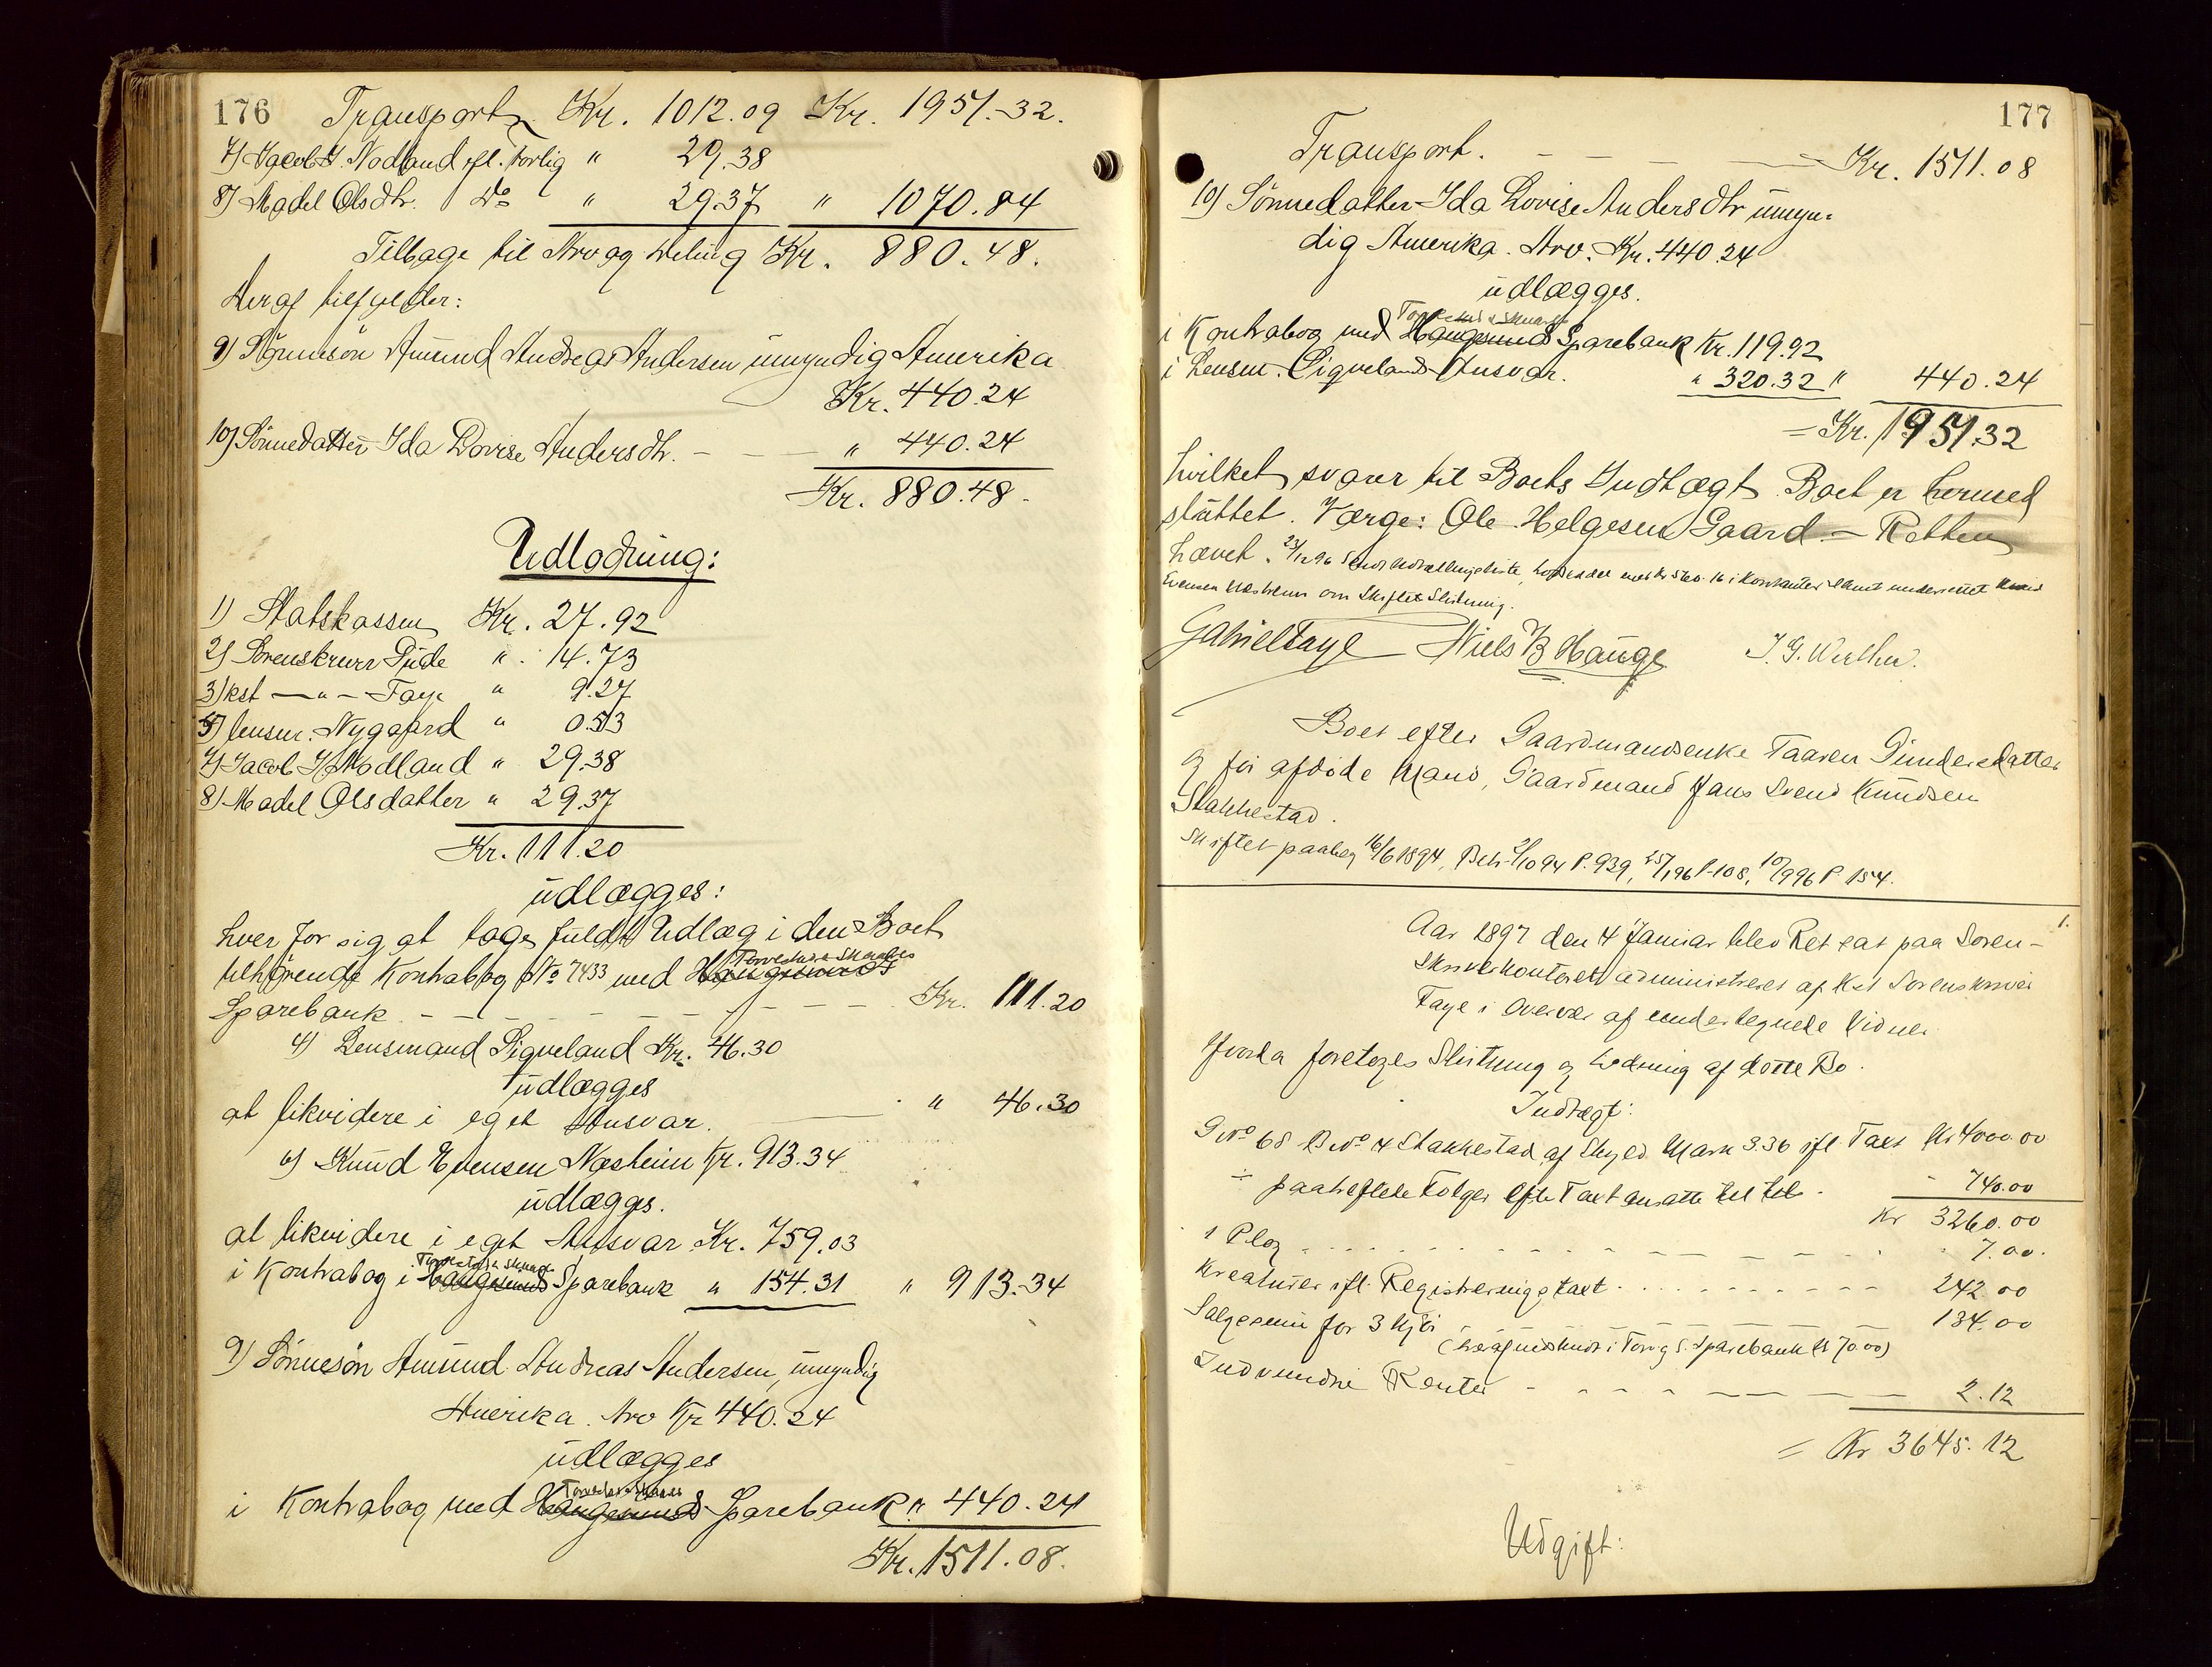 176 Transport Kr. 1012.09 Kr. 1951.32.
7) Jacob J. Nodland ifl. Forlig " 29.38
8) Madel Olsdtr. Do " 29.37 " 1070.84
Tilbage til Arv og Deling Kr. 880.48.
Deraf tilfylder:
9) Sønnesøn Amund Andreas Andersen umyndig Amerika
Kr. 440.24
10) Sønnedatter Ida Lovise Andersdtr. - - " 440.24
Kr. 880.48.
Udlodning:
1) Statskassen Kr. 27.92
2) Sorenskriver Gude " 14.73
3) kst — " — Faye " 9.27
5) Lensm. Nygaard " 0.53
7) Jacob J. Nodland " 29.38
8) Madel Olsdatter " 29.37
Kr. 111.20
udlægges:
hver for sig at tage fuldt Udlæg i den Boet
Torvestad & Skaares
tilhørende Kontrabog No 7433 med Haugesunds
Sparebank - - - - Kr. 111.20
4) Lensmand Sigveland Kr. 46.30
udlægges
at likvidere i eget Ansvar. " 46.30
6) Knud Evensen Næsheim Kr. 913.34
udlægges.
at likvidere i eget Ansvar Kr. 759.03
Torvestad & Skaare
i Kontrabog i Haugesunds Sparebank " 154.31 " 913.34
9) Sønnesøn Amund Andreas Andersen, umyndig
Amerika. Arv Kr 440.24
udlægges
Torvestad & Skaares
i Kontrabog med Haugesunds Sparebank " 440.24
Kr. 1511.08.
177
Transport. - - - Kr. 1511.08
10) Sønnedatter Ida Lovise Andersdtr umyn-
dig Amerika. Arv. Kr. 440.24
udlægges.
Torvestad & Skaares
i Kontrabog med Haugesunds Sparebank Kr. 119.92
i Lensm. Sigvelands Ansvar. " 320.32 " 440.24
= Kr. 1951.32
hvilket svarer til Boets Indtægt. Boet er hermed
sluttet. Værge: Ole Helgesen Gaard. — Retten
hævet. 23/12 96 Kr 560.16 i Kontanter samt underrettet Knud
Evensen Næsheim om Skiftets Slutning.
Gabriel Faye Niels B Hauge
Boet efter Gaardmandsenke Taaren Gundersdatter
og før afdøde Mand, Gaardmand Hans Svend Knudsen
Stakkestad.
Skiftet paabeg 16/6 1894, Beh. 2/10 94 P. 939, 25/1 96 P. 108, 10/9 96 P. 154.
1.
Aar 1897 den 4 Januar blev Ret sat paa Soren-
skriverkontoret administreret af Kst Sorenskriver
Faye i Overvær af undertegnede Vidner.
Hvorda foretoges Slutning og Lodning af dette Bo.
Indtægt:
G No 68 B No 4 Stakkestad af Skyld Mark 3.36 ifl. Taxt Kr 4000.00
÷ paaheftede Folger efter Taxt ansatte til - 740.00
Kr 3260.00
1 Plog - - - - 7.00.
Kreaturer ifl. Registreringstaxt - - - - 242.00
Salgssum for 3 Kjør - - - - 134.00
(heraf indskudt i Torv. & S. Sparebank Kr 70.00)
Indvundne Renter - - - - 2.12
= Kr 3645.12
Udgift: